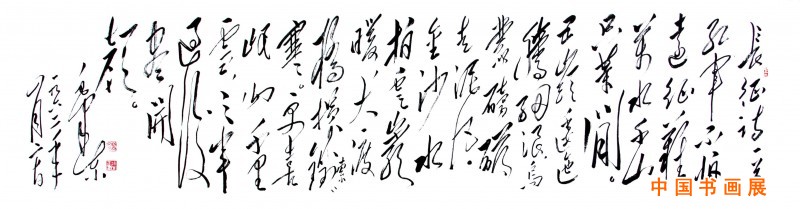 长征诗一首
红军不怕
远征难
万水千山
只等闲。
五岭逶迤
腾细浪乌
蒙磅礴
走泥丸
金沙水
拍云崖
暖大渡
桥横铁索
寒。更喜
岷山千里
雪三军
过后
尽开
颜。
毛泽东
一九六二年
中国书画展